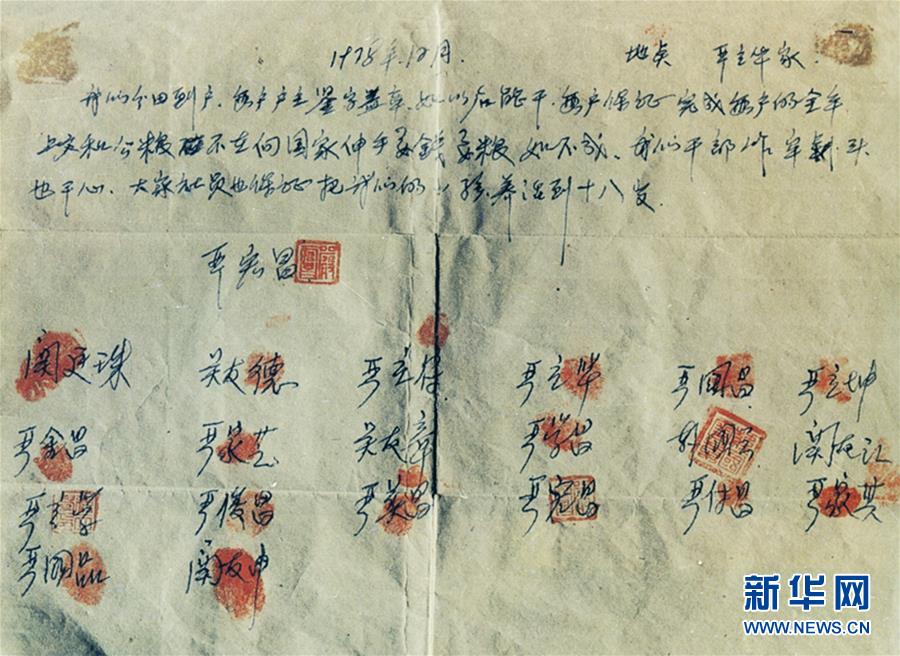 1978年12月. 地点 严立华家.
我们分田到户,每户户主鉴字盖章,如以后能干,每户保证完成每户的全年
上交和公粮 不在向国家伸手要錢要粮 如不成,我们干部作牢 头
也干心,大家社员也保证把我们的小孩养活到十八岁.
严宏昌
関廷珠 关友德 严立符 严立华 严国昌 严立坤
严金昌 严家芝 关友章 严学昌 韩国云 関友江
严立学 严俊昌 严美昌 严宏昌 严付昌 严家其
严国品 関友申
新华网
WWW.NEWS.CN